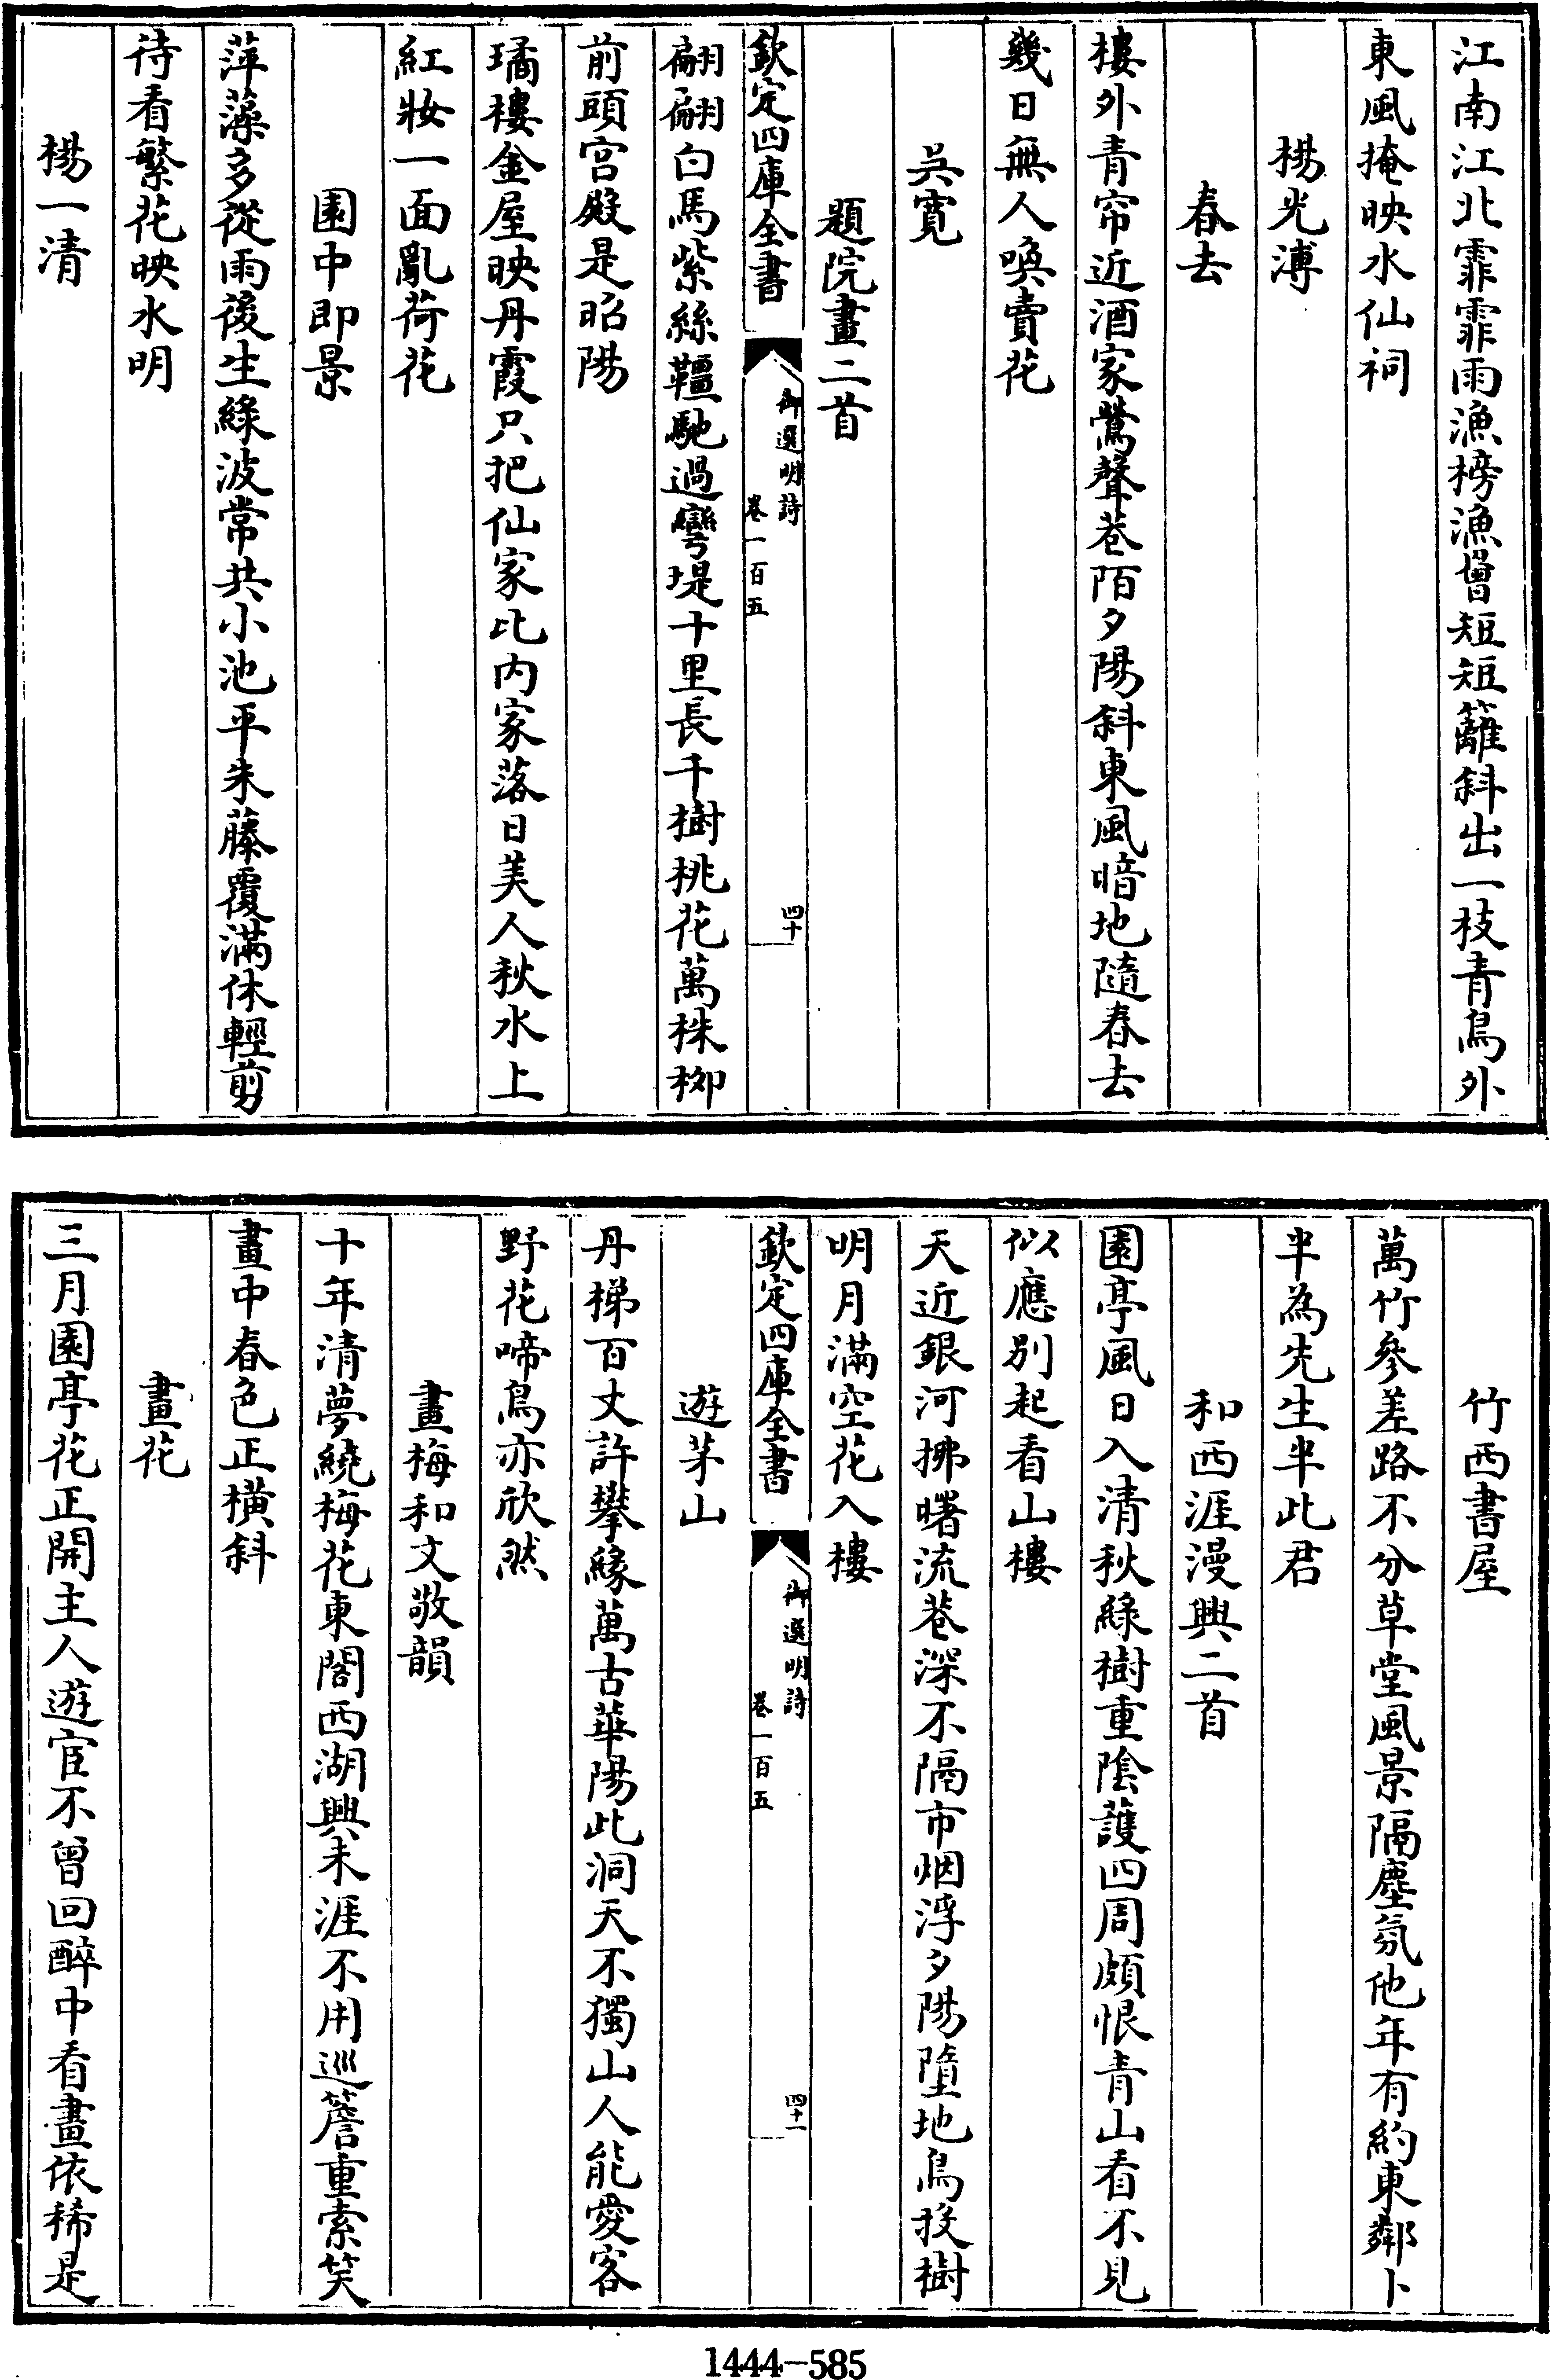 江南江北霏霏雨漁榜漁罾短短籬斜出一枝青鳥外
東風掩映水仙祠
楊光溥
春去
樓外青帘近酒家鶯聲巷陌夕陽斜東風暗地隨春去
幾日無人喚賣花
吳寬
題院畫二首
欽定四庫全書
御選明詩
卷一百五
四十
翩翩白馬紫絲韁馳過彎堤十里長千樹桃花萬株柳
前頭宫殿是昭陽
璚樓金屋映丹霞只把仙家比内家落日美人秋水上
紅妝一面亂荷花
園中即景
萍藻多從雨後生緑波常共小池平朱藤覆滿休輕剪
待看繁花映水明
楊一清
竹西書屋
萬竹參差路不分草堂風景隔塵氛他年有約東鄰卜
半為先生半此君
和西涯漫興二首
園亭風日入清秋緑樹重陰護四周頗恨青山看不見
似應别起看山樓
天近銀河拂曙流巷深不隔市烟浮夕陽墮地鳥投樹
明月滿空花入樓
欽定四庫全書
御選明詩
卷一百五
四十一
遊茅山
丹梯百丈許攀緣萬古華陽此洞天不獨山人能愛客
野花啼鳥亦欣然
畫梅和文敬韻
十年清夢繞梅花東閣西湖興未涯不用巡簷重索笑
畫中春色正橫斜
畫花
三月園亭花正開主人遊宦不曾回醉中看畫依稀是
1444-585